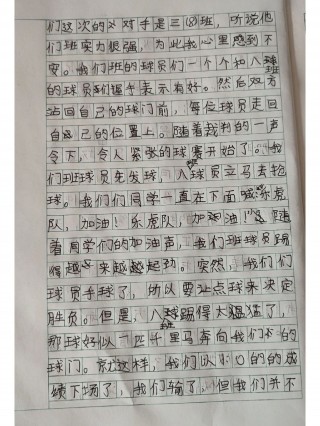 们这次的对手是三(8)班，听说他
们班实力很强，为此我心里感到不
安。我们班的球员们一个个和八班
的球员们握手表示有好。然后双方
站回自己的球门前，每位球员走回
自己的位置上。随着裁判的一声
令下，令人紧张的球赛开始了。我
们班球员先发球，八班球员立马去抢
球。我们同学一直在下面喊乐虎
队，加油！乐虎队，加油！随
着同学们的加油声，我们班球员踢
得越来越起劲。突然，我们们
球员手球了，所以要让点球来决定
胜负。但是，八班踢得太猛了，
那球好似一匹千里马奔向我们的
球门。就这样，我们以的成
绩下场了，我们输了，但我们并不